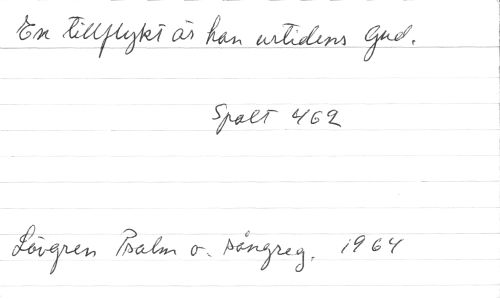 En tillflykt är han urtidens Gud.
Spalt 462
Lövgren Psalm o. sångreg. 1964